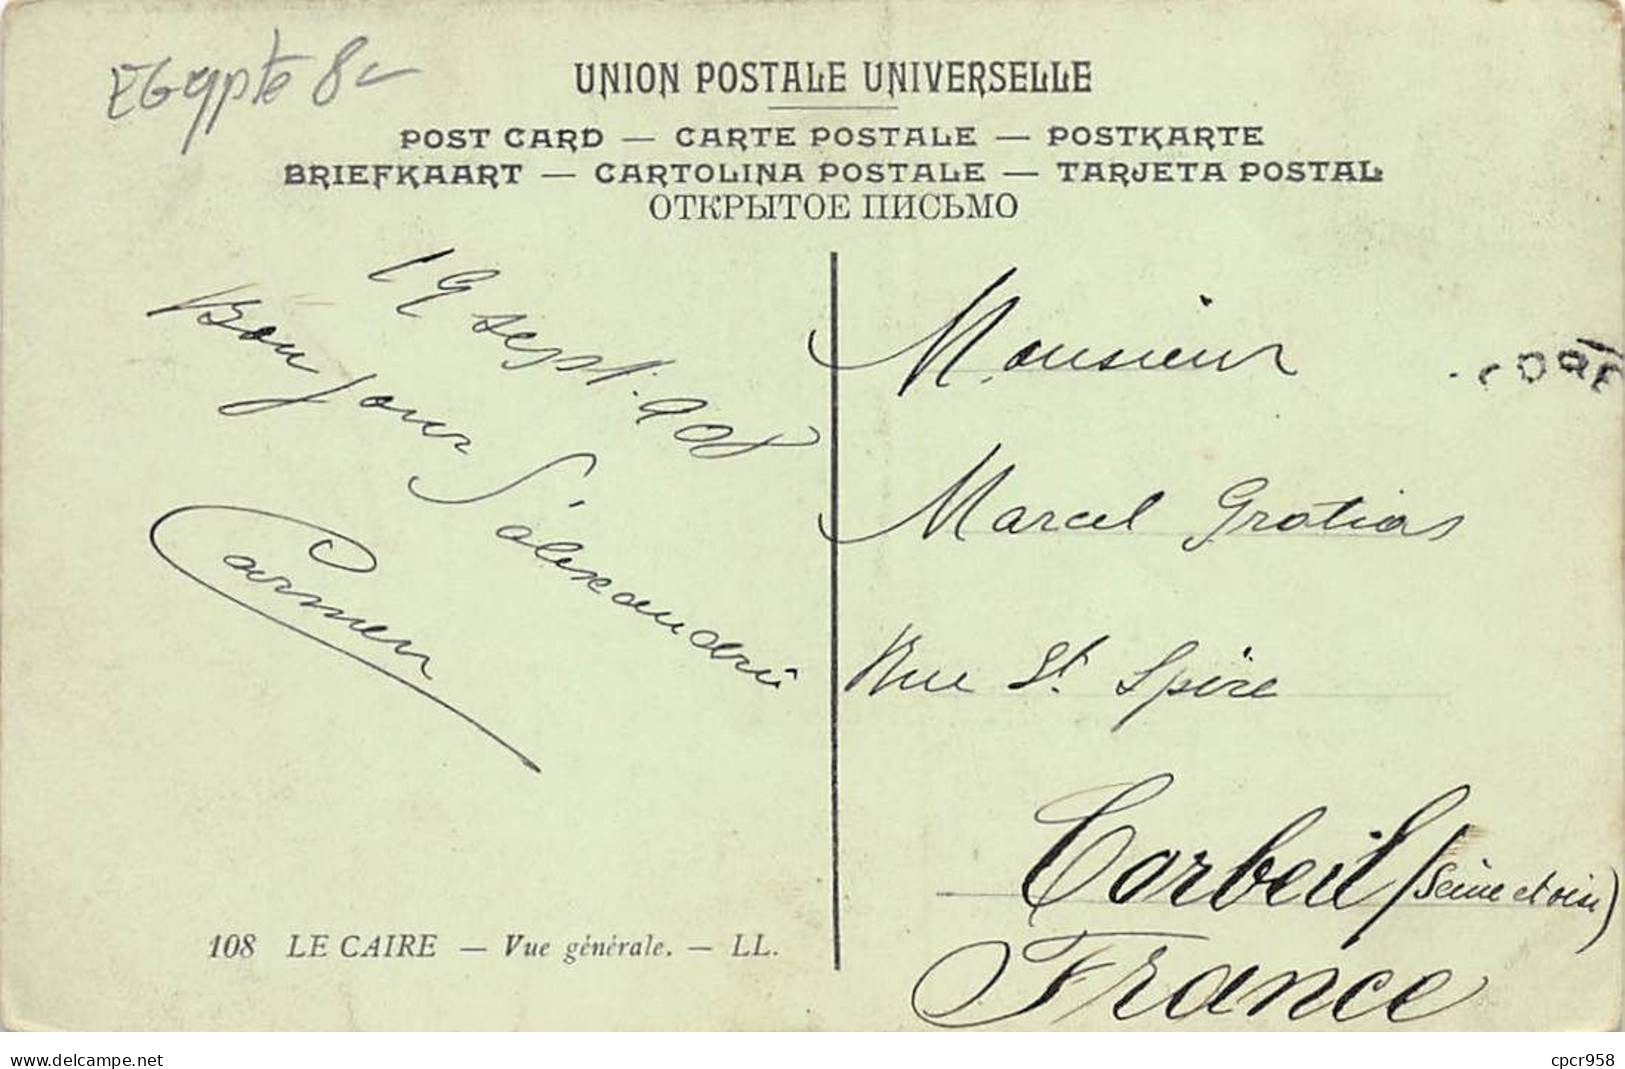 Egypte 8
UNION POSTALE UNIVERSELLE
POST CARD — CARTE POSTALE — POSTKARTE
BRIEFKAART — CARTOLINA POSTALE — TARJETA POSTAL
ОТКРЫТОЕ ПИСЬМО
19 sept. 908
Bonjour d'Alexandrie
Carmen
Monsieur
Marcel Gratias
Rue St. Spire
Corbeil (Seine et oise)
France
108 LE CAIRE — Vue générale. — LL.
delcampe.net
cpcr958